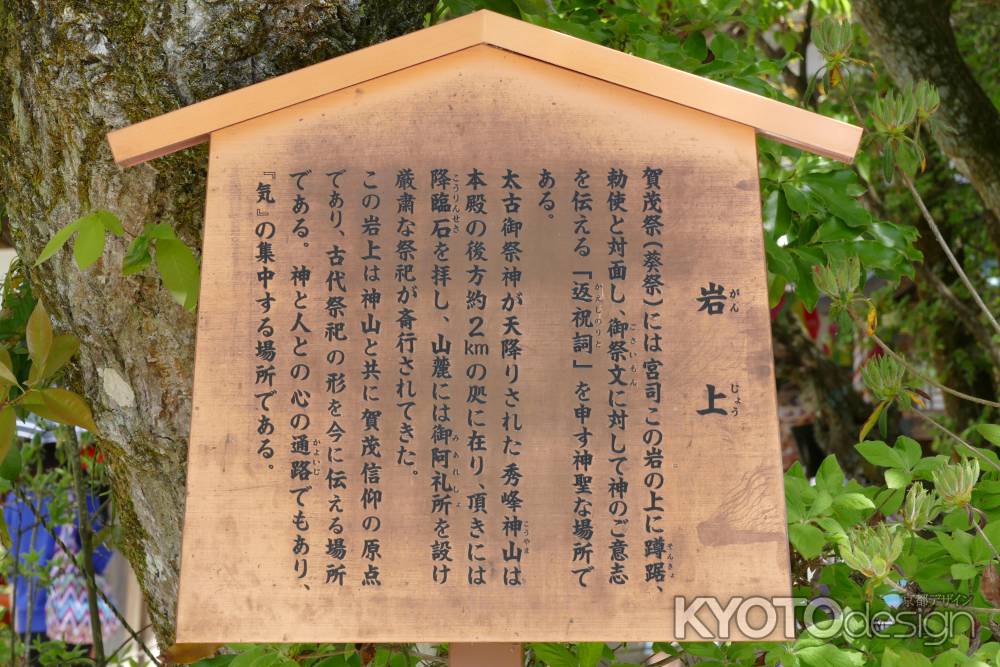 岩上
がん じょう
賀茂祭(葵祭)には宮司この岩の上に蹲踞、
そんきょ
勅使と対面し、御祭文に対して神のご意志
ごさいもん
を伝える「返祝詞」を申す神聖な場所で
かえしのりと
ある。
太古御祭神が天降りされた秀峰神山は
こうやま
本殿の後方約2kmの処に在り、頂きには
降臨石を拝し、山麓には御阿礼所を設け
こうりんせき みあれしょ
厳粛な祭祀が斎行されてきた。
この岩上は神山と共に賀茂信仰の原点
であり、古代祭祀の形を今に伝える場所
である。神と人との心の通路でもあり、
かよいじ
『気』の集中する場所である。
KYOTOdesign
京都デザイン